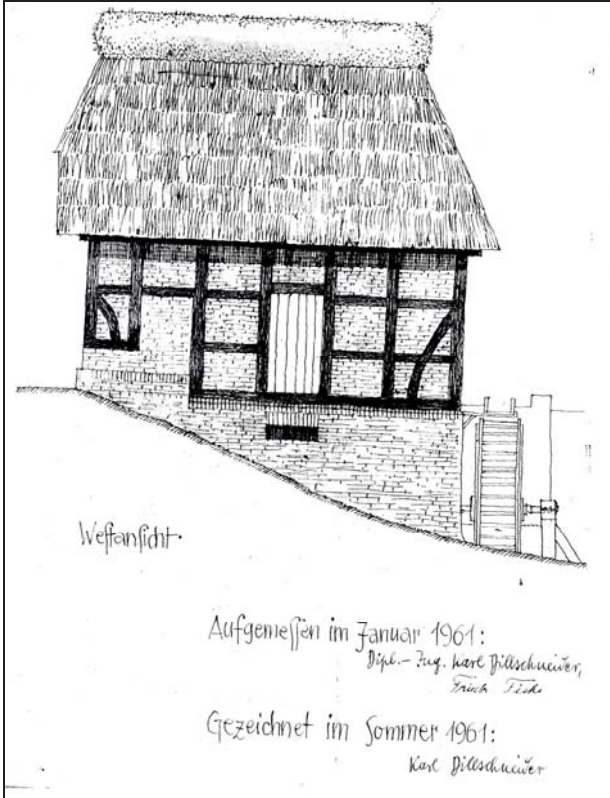 Westansicht.
Aufgemessen im Januar 1961:
Dipl.-Ing. Karl Dillschneider,
Gezeichnet im Sommer 1961:
Karl Dillschneider